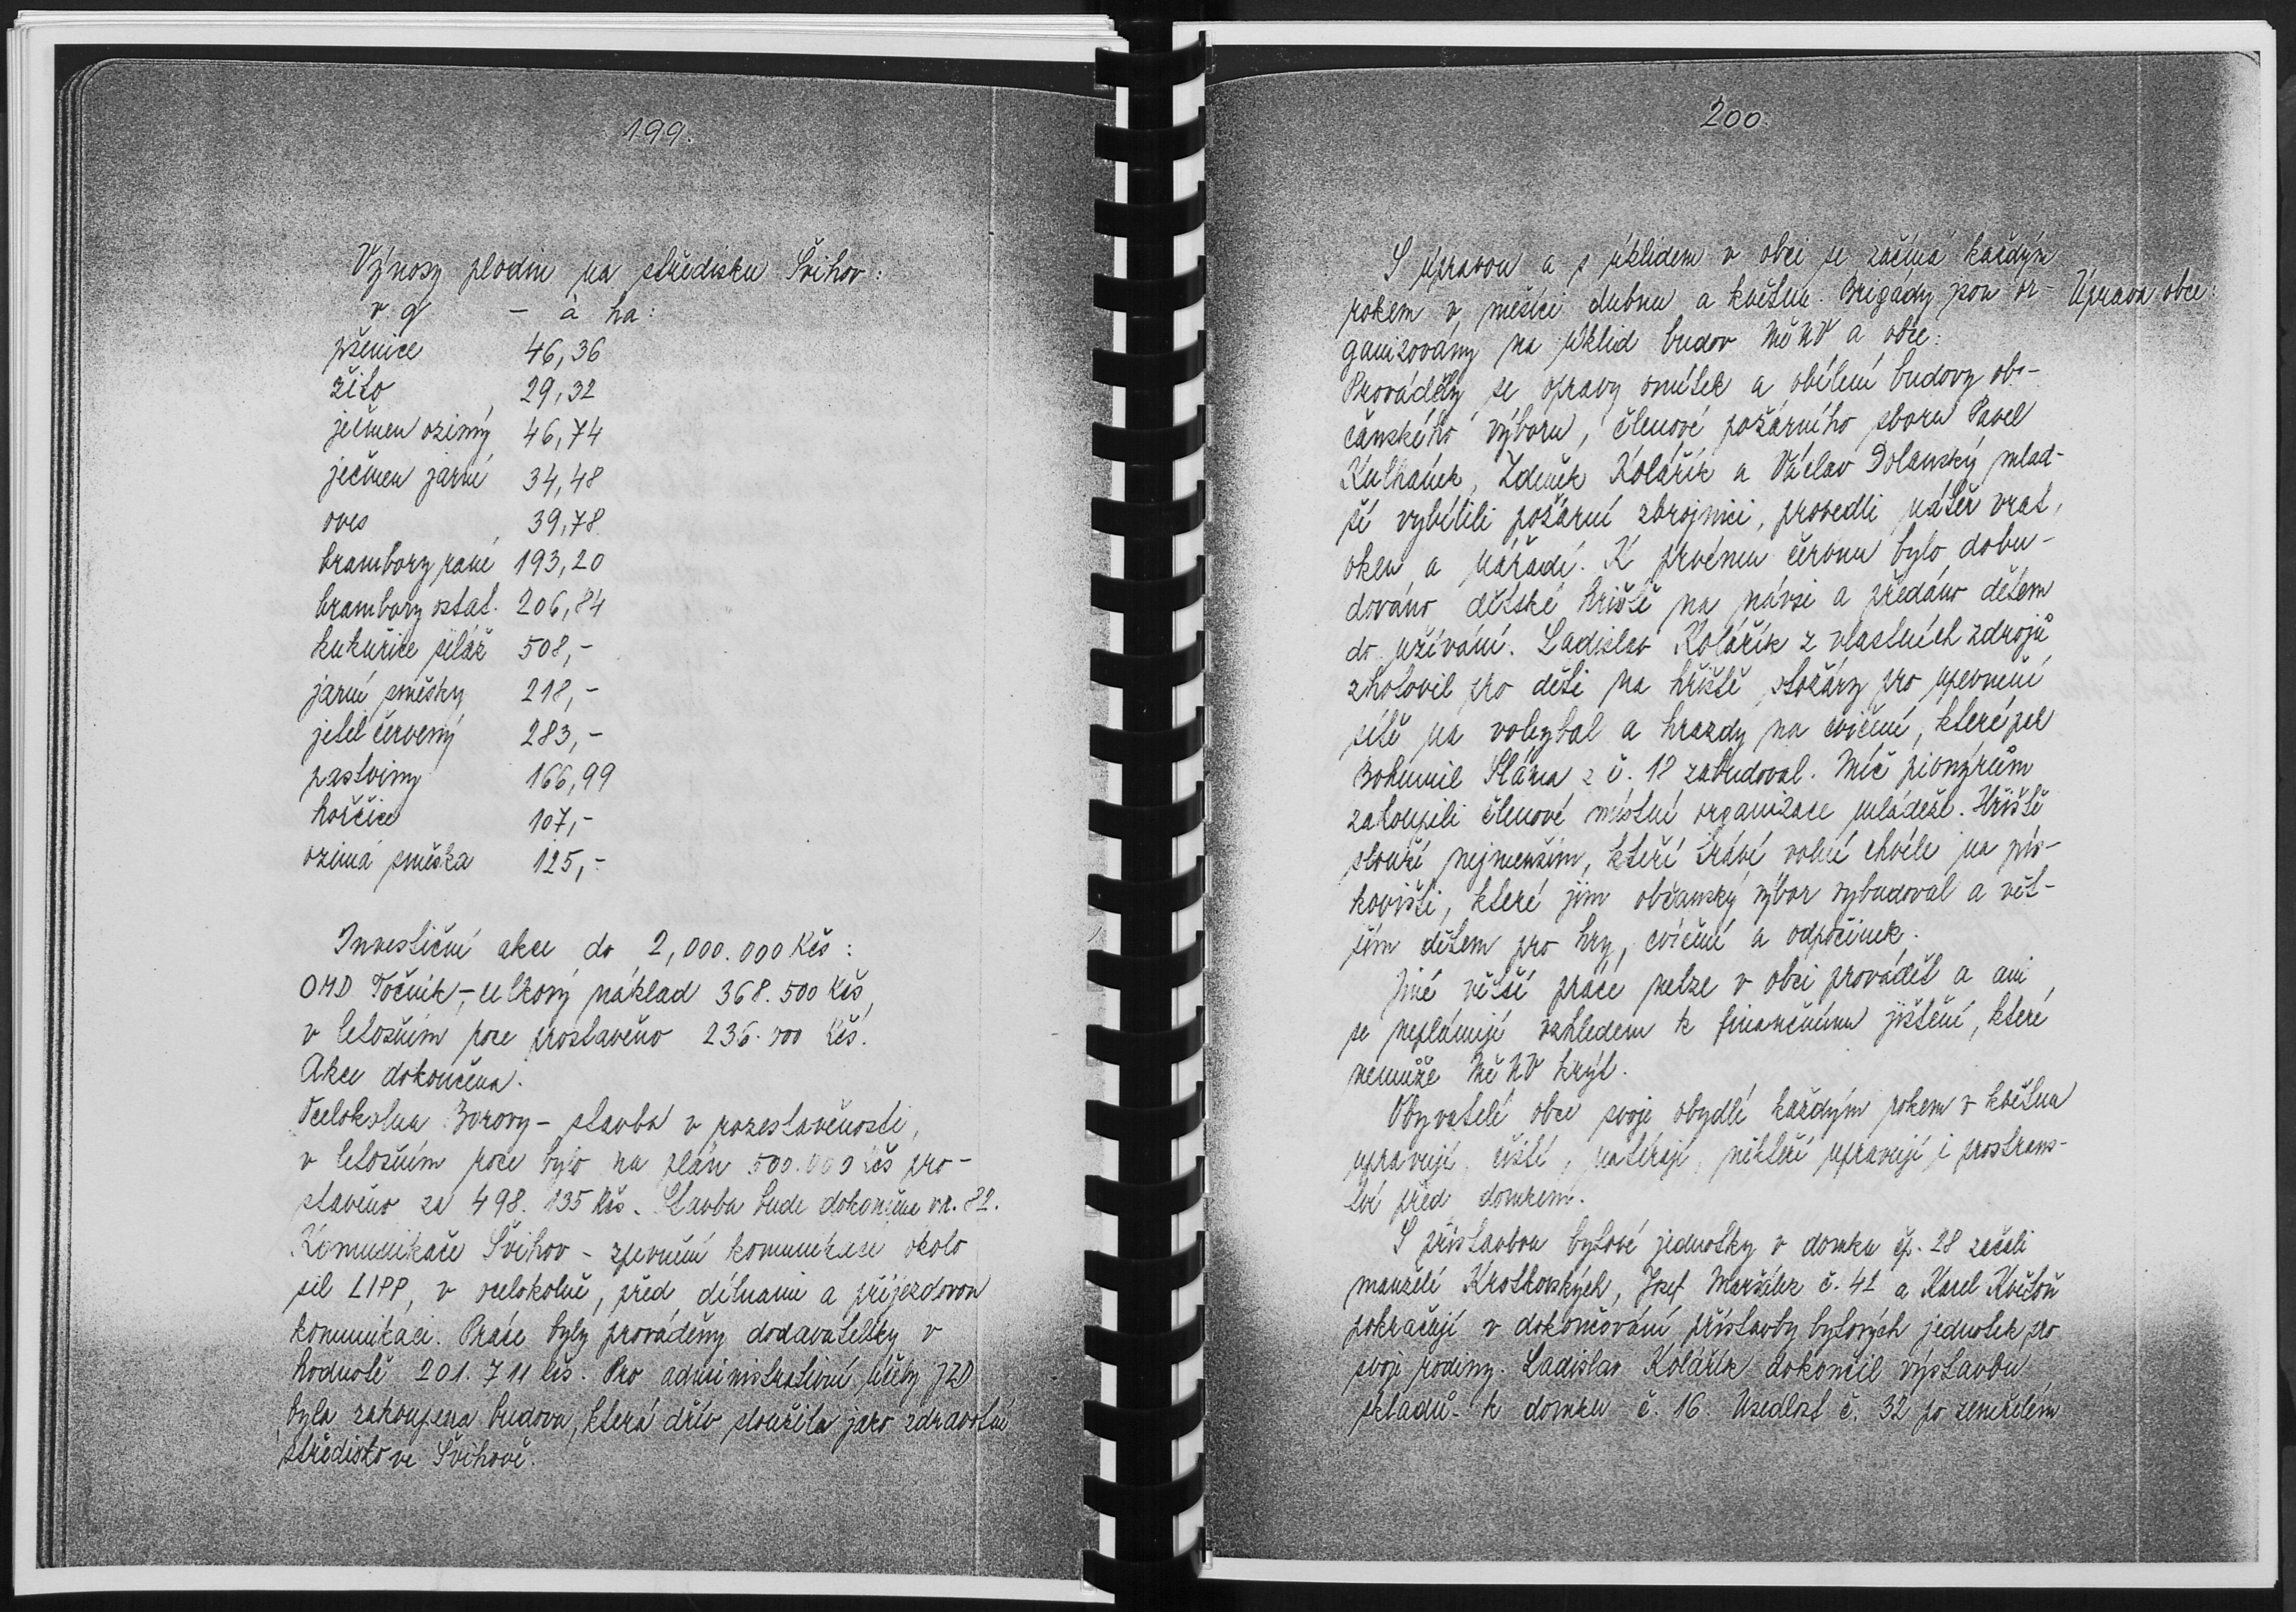 199.
Výnosy plodin na středisku Švihov:
v q - à ha:
pšenice 46,36
žito 29,32
ječmen ozimý 46,74
ječmen jarní 34,48
oves 39,78
brambory rané 193,20
brambory ostat. 206,84
kukuřice siláž 508,-
jarní směsky 218,-
jetel červený 283,-
pastviny 166,99
hořčice 107,-
ozimá směska 125,-
Investiční akce do 2,000.000 Kčs:
OMD Točník - celkový náklad 368.500 Kčs,
v letošním roce prostavěno 236.000 Kčs.
Akce dokončena.
Ocelokolna Borovy - stavba v rozestavěnosti,
v letošním roce bylo na plán 500.000 Kčs pro-
stavěno za 498.135 Kčs. Stavba bude dokončena v r. 82.
Komunikace Švihov - zpevnění komunikace okolo
sil LIPP, v ocelokolně, před dílnami a příjezdovou
komunikaci. Práce byly prováděny dodavatelsky v
hodnotě 201.711 Kčs. Pro administrativní účely JZD
byla zakoupena budova, která dřív sloužila jako zdravotní
středisko ve Švihově.
200.
S úpravou a s úklidem v obci se začíná každým
rokem v měsíci dubnu a květnu. Brigády jsou or-
Úprava obce:
ganizovány na úklid budov MěNV a obce.
Prováděly se opravy omítek a obílení budovy ob-
čanského výboru, členové požárního sboru Pavel
Kulhánek, Zdeněk Kolářík a Václav Dolanský mlad-
ší vybílili požární zbrojnici, provedli nátěr vrat,
oken a nářadí. K prvému červnu bylo dobu-
dováno dětské hřiště na návsi a předáno dětem
do užívání. Ladislav Kolářík z vlastních zdrojů
zhotovil pro děti na hřiště stožáry pro upevnění
sítě na volejbal a hrazdy na cvičení, které pak
Bohumil Sláma z č. 18 zabudoval. Míč pionýrům
zakoupili členové místní organizace mládeže. Hřiště
slouží nejmenším, kteří tráví volné chvíle na pís-
kovišti, které jim občanský výbor vybudoval a vět-
ším dětem pro hry, cvičení a odpočinek.
Jiné větší práce nelze v obci provádět a ani
se neplánují vzhledem k finančnímu jištění, které
nemůže MěNV krýt.
Obyvatelé obce svoje obydlí každým rokem v květnu
upravují, čistí, natírají, někteří upravují i prostrans-
tví před domkem.
S přístavbou bytové jednotky v domku čp. 28 začali
manželé Krotkovských, Josef Maršálek č. 41 a Karel Květoň
pokračují v dokončování přístavby bytových jednotek pro
svoje rodiny. Ladislav Kolářík dokončil výstavbu
skladů k domku č. 16. Usedlost č. 32 po zemřelém